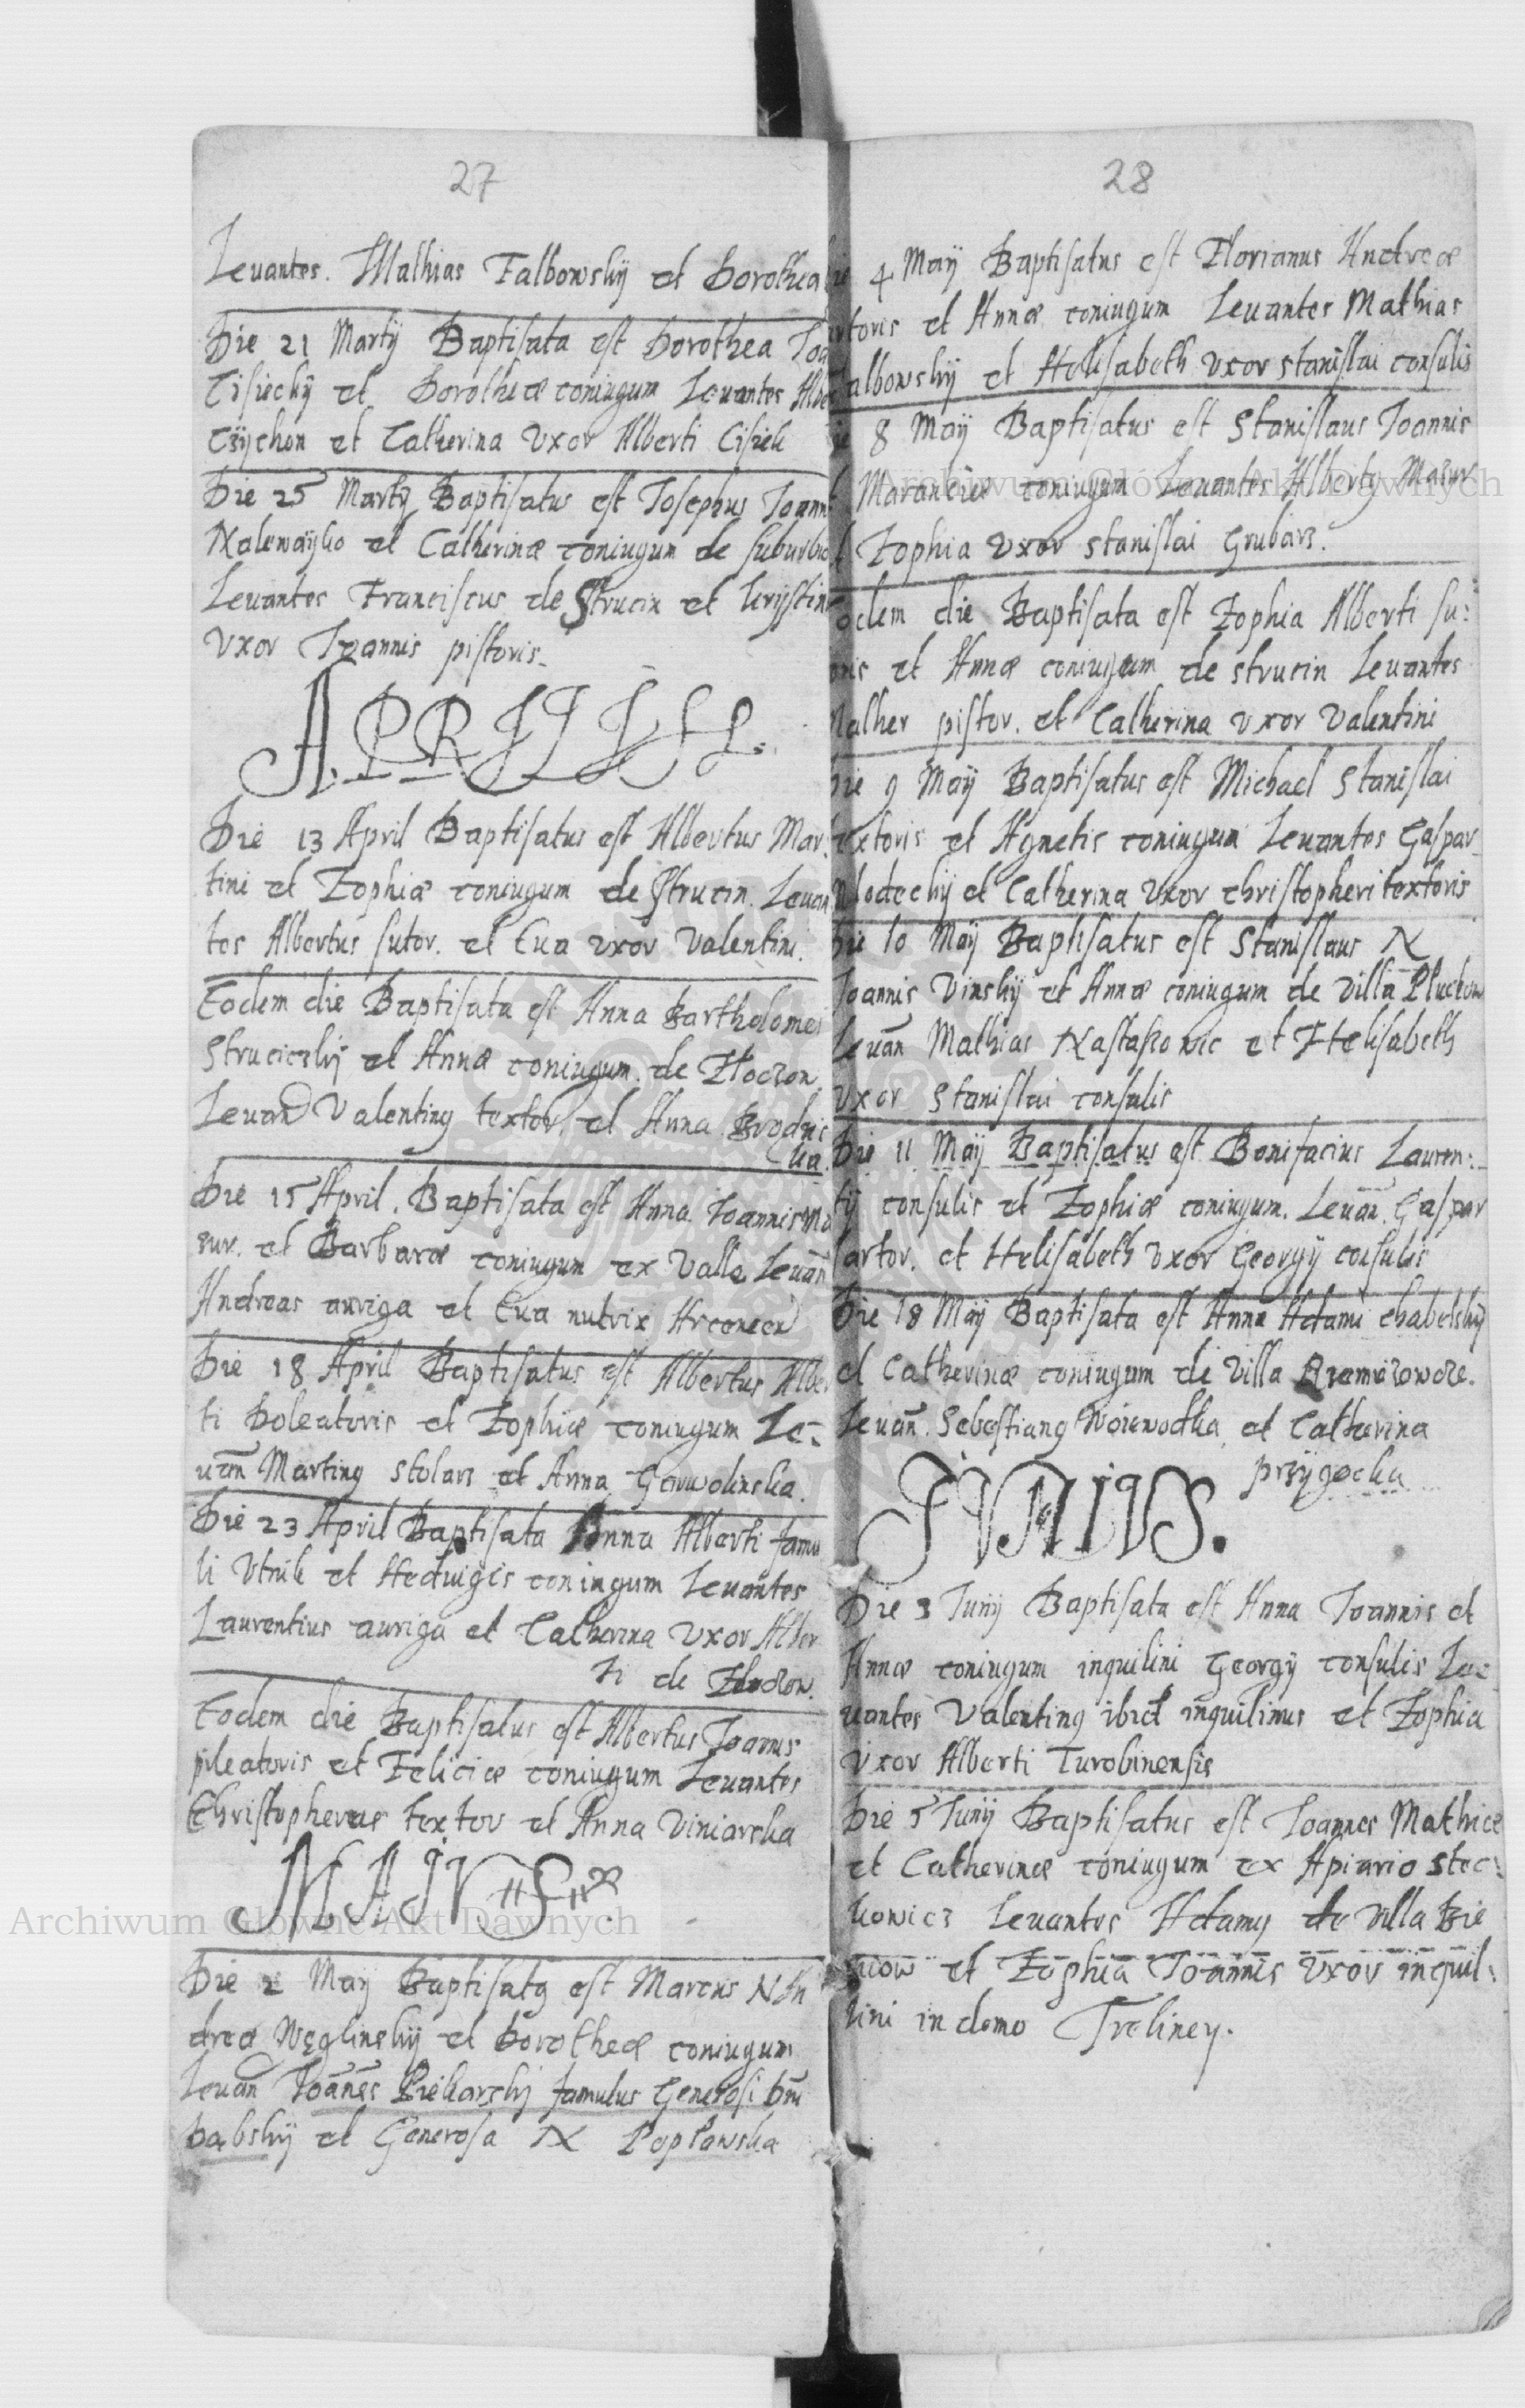 27
Leuantes. Mathias Falbowskÿ et Dorothea
Die 21 Martÿ Baptisata est Dorothea Joa
Cisieckÿ et Dorotheæ coniugum Leuantes Albe
Czÿchon et Catherina Vxor Alberti Cisiek
Die 25 Martÿ Baptisatus est Josephus Joann
Nalewaÿko et Catherinæ coniugum de suburbio
Leuantes Franciscus de Strucin et Krÿstina
Vxor Joannis pistoris.
APRILIS
Die 13 April Baptisatus est Albertus Mar
tini et Zophiæ coniugum de Strucin. Leuan
tes Albertus sutor. et Eua vxor Valentini.
Eodem die Baptisata est Anna Bartholomei
Strucicskÿ et Annæ coniugum. de Zloczow
Leuan Valentinq textor. et Anna Brodnic
ka.
Die 15 April. Baptisata est Anna Joannis Ma
zur. et Barbaræ coniugum ex Valle Leuan
Andreas auriga et Eua nutrix
Die 18 April Baptisatus est Albertus Alber
ti Doleatoris et Zophiæ coniugum Le:
uan Martinq stolarz et Anna Garwolinska.
Die 23 April Baptisata Anna Alberti famu
li Vtnik et Hedwigis coniugum Leuantes
Laurentius auriga et Catherina Vxor Alber
ti de Zloczow.
Eodem die Baptisatus est Albertus Joannis
pileatoris et Feliciæ coniugum Leuantes
Christopherus textor et Anna Viniarska
MAIVS
Die 2 Maÿ Baptisatq est Marcus N An
dreæ Węglinskÿ et Dorotheæ coniugum
Leuan Joannes Piekarskj famulus Generosi Dni
Dąbskÿ et Generosa N Popławska
28
4 Maÿ Baptisatus est Florianus Andreæ
toris et Annæ coniugum Leuantes Mathias
albowskÿ et Helisabeth vxor stanislai consulis
8 Maÿ Baptisatus est Stanislaus Joannis
Marancize coniugum Leuantes Albertq Mazur
Zophia vxor stanislai Grubarz.
odem die Baptisata est Zophia Alberti su:
oris et Annæ coniugum de strucin Leuantes
alher pistor. et Catherina vxor Valentini
Die 9 Maÿ Baptisatus est Michael Stanislai
extoris et Agnetis coniugum Leuantes Gaspar
Mlodeckÿ et Catherina Vxor Christopheri textoris
Die 10 Maÿ Baptisatus est Stanislaus N
Joannis Vinskÿ et Annæ coniugum de Villa Pluckow
Leuan Mathias Nastasowic et Helisabeth
vxor Stanislai consulis
Die 11 Maÿ Baptisatus est Bonifacius Lauren:
tÿ consulis et Zophiæ coniugum. Leuan. Gaspar
sartor. et Helisabeth Vxor Georgÿ consulis
Die 18 Maÿ Baptisata est Anna Adami chabelskÿ
et Catherinæ coniugum de villa
Leuan. Sebestianq Woiewodka et Catherina
przÿgocka
IVNIVS.
Die 3 Junÿ Baptisata est Anna Joannis et
Annæ coniugum inquilini Georgÿ consulis Le:
uantes Valentinq ibid inquilinus et Zophia
Vxor Alberti Turobinensis
Die 5 Junÿ Baptisatus est Joannes Mathiæ
et Catherinæ coniugum ex Apiario stec:
kowicz Leuantes Adamq de villa Bie
niow et Zophia Joannis vxor inquil:
lini in domo Treliney.
Archiwum Główne Akt Dawnych
Archiwum Główne Akt Dawnych